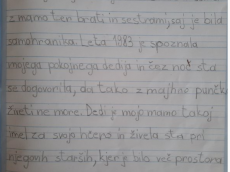 z mamo ter brati in sestrami, saj je bila
samohranilka. Leta 1983 je spoznala
mojega pokojnega dedija in čez noč sta
se dogovorila, da tako z majhno punčko
živeti ne more. Dedi je mojo mamo takoj
imel za svojo hčerko in živela sta pri
njegovih starših, kjer je bilo več prostora